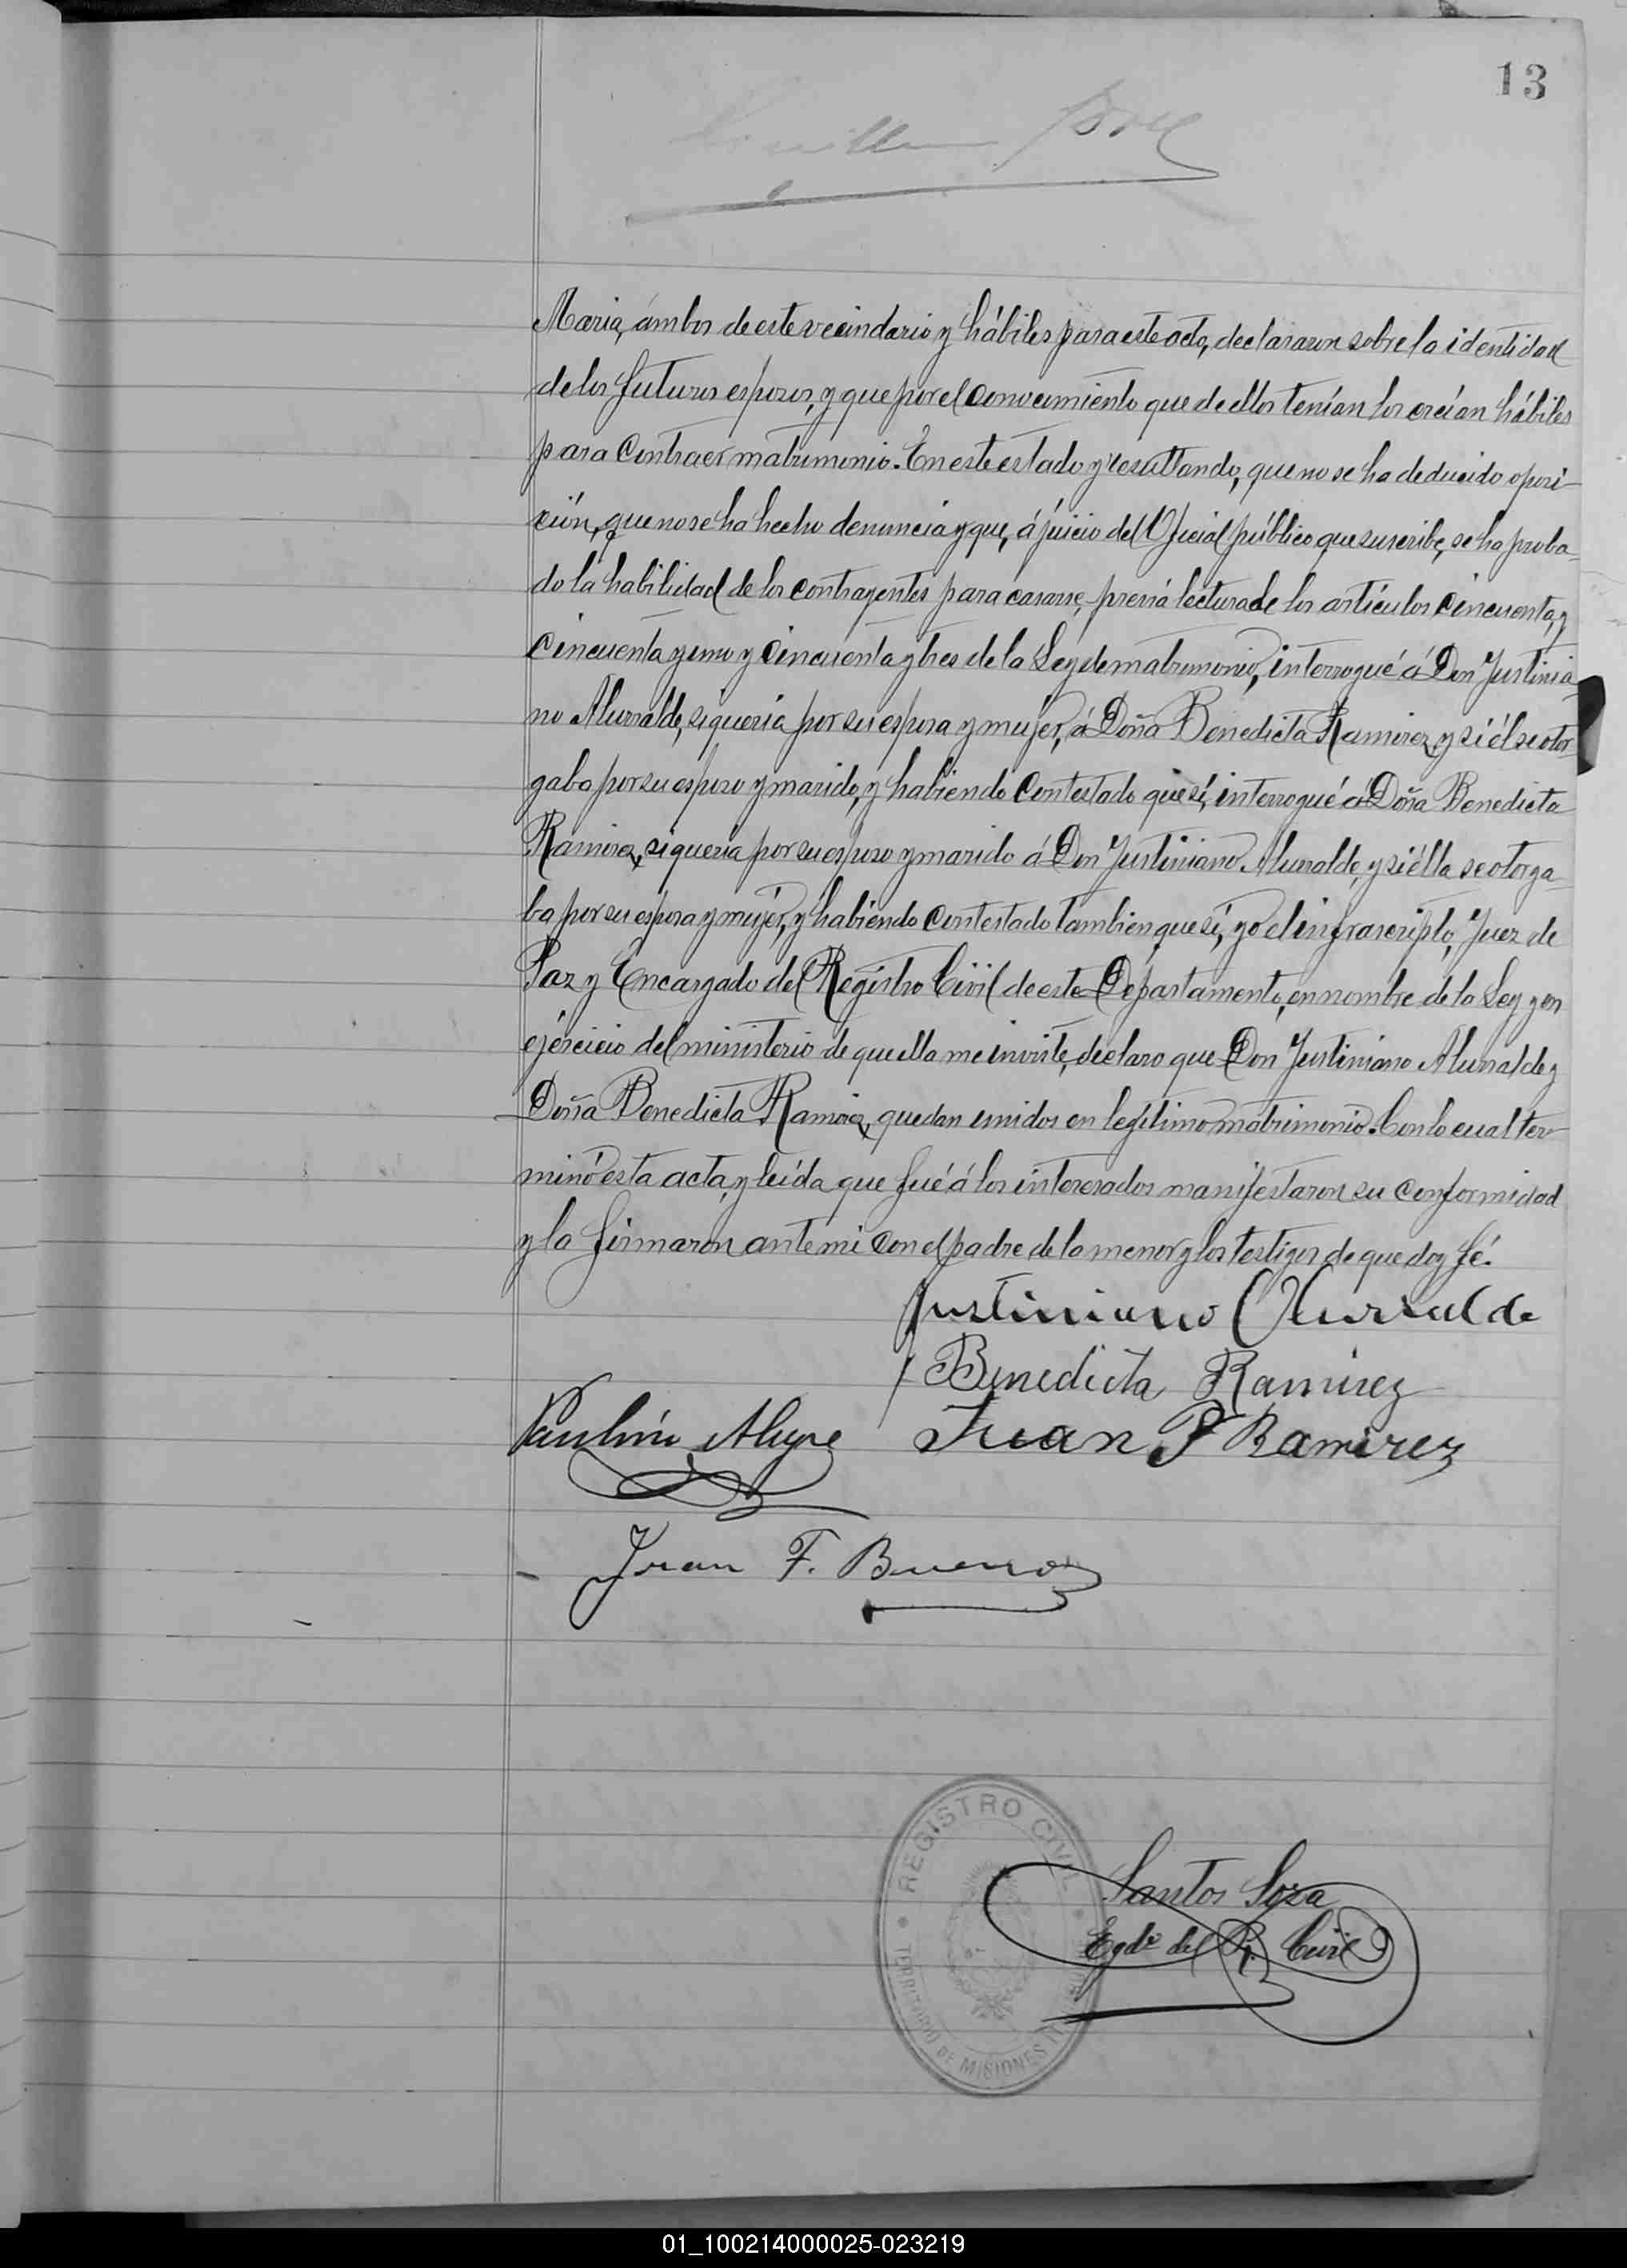 13
Maria, ámbos de este vecindario y hábiles para este acto, declararon sobre la identidad
de los futuros esposos, y que por el conocimiento que de ellos tenían los creían hábiles
para contraer matrimonio. En este estado y resultando, que no se ha deducido oposi-
ción, que no se ha hecho denuncia y que, á juicio del Oficial público que suscribe, se ha proba-
do la habilidad de los contrayentes para casarse, previa lectura de los artículos cincuenta, y
cincuenta y uno y cincuenta y tres de la Ley de matrimonio, interrogué á Don Justinia-
no Alurralde, si quería por su esposa y mujer, á Doña Benedicta Ramirez, y si él se otor-
gaba por su esposo y marido, y habiendo contestado que sí, interrogué á Doña Benedicta
Ramirez, si quería por su esposo y marido á Don Justiniano Alurralde, y si élla se otorga-
ba por su esposa y mujer, y habiendo contestado tambien que sí, yo el infrascripto, Juez de
Paz y Encargado del Registro Civil de este Departamento, en nombre de la Ley y en
ejercicio del ministerio de que ella me inviste, declaro que Don Justiniano Alurralde y
Doña Benedicta Ramirez, quedan unidos en legítimo matrimonio. Con lo cual ter-
minó esta acta, y leída que fué á los interesados manifestaron su conformidad
y la firmaron ante mi con el padre de la menor y los testigos de que doy fé.
Justiniano Alurralde
Benedicta Ramirez
Paulino Alegre Juan P Ramirez
Juan F. Bueno
REGISTRO CIVIL
TERRITORIO DE MISIONES
Santos Soza
Egdo del R. Civil
01_100214000025-023219